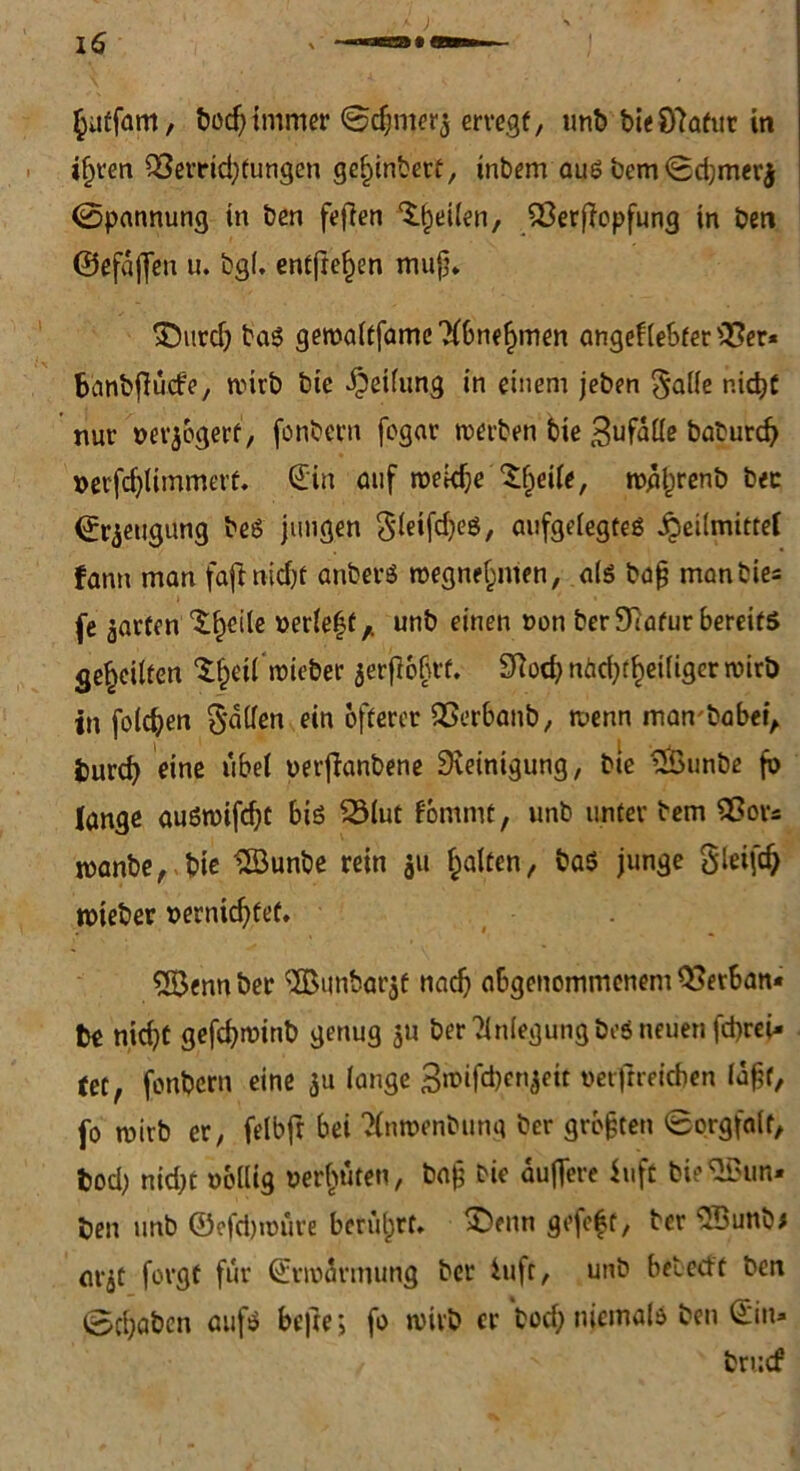 16
hutsam, doch immer Schmerz erregt, und die Natur in
ihren Verrichtungen gehindert, indem aus dem Schmerz
Spannung in den festen Theilen, Verstopfung in den
Gefässen u. dgl. entstehen muß.
Durch das gewaltsame Abnehmen angeklebter Ver-
bandstücke, wird die Heilung in einem jeden Falle nicht
nur verzögert, sondern sogar werden die Zufälle dadurch
verschlimmert. Ein auf weiche Theile, während der
Erzeugung des jungen Fleisches, aufgelegtes Heilmittel
kann man fast nicht anders wegnehmen, als daß man die-
se zarten Theile verletzt, und einen von der Natur bereits
geheilten Theil wieder zerstöhrt. Noch nachtheiliger wird
in solchen Fällen ein öfterer Verband, wenn man dabei,
durch eine übel verstandene Reinigung, die Wunde so
lange auswischt bis Blut kömmt, und unter dem Vor-
wande, die Wunde rein zu halten, das junge Fleisch
wieder vernichtet.
Wenn der Wundarzt nach abgenommenem Verban-
de nicht geschwind genug zu der Anlegung des neuen schrei-
tet, sondern eine zu lange Zwischenzeit verstreichen läßt,
so wird er, selbst bei Anwendung der größten Sorgfalt,
doch nicht völlig verhüten, daß die äussere Luft die Wun-
den und Geschwüre berührt. Denn gesetzt, der Wund-
arzt sorgt für Erwärmung der Luft, und bedeckt den
Schaden aufs beste; so wird er doch niemals den Ein-
druck